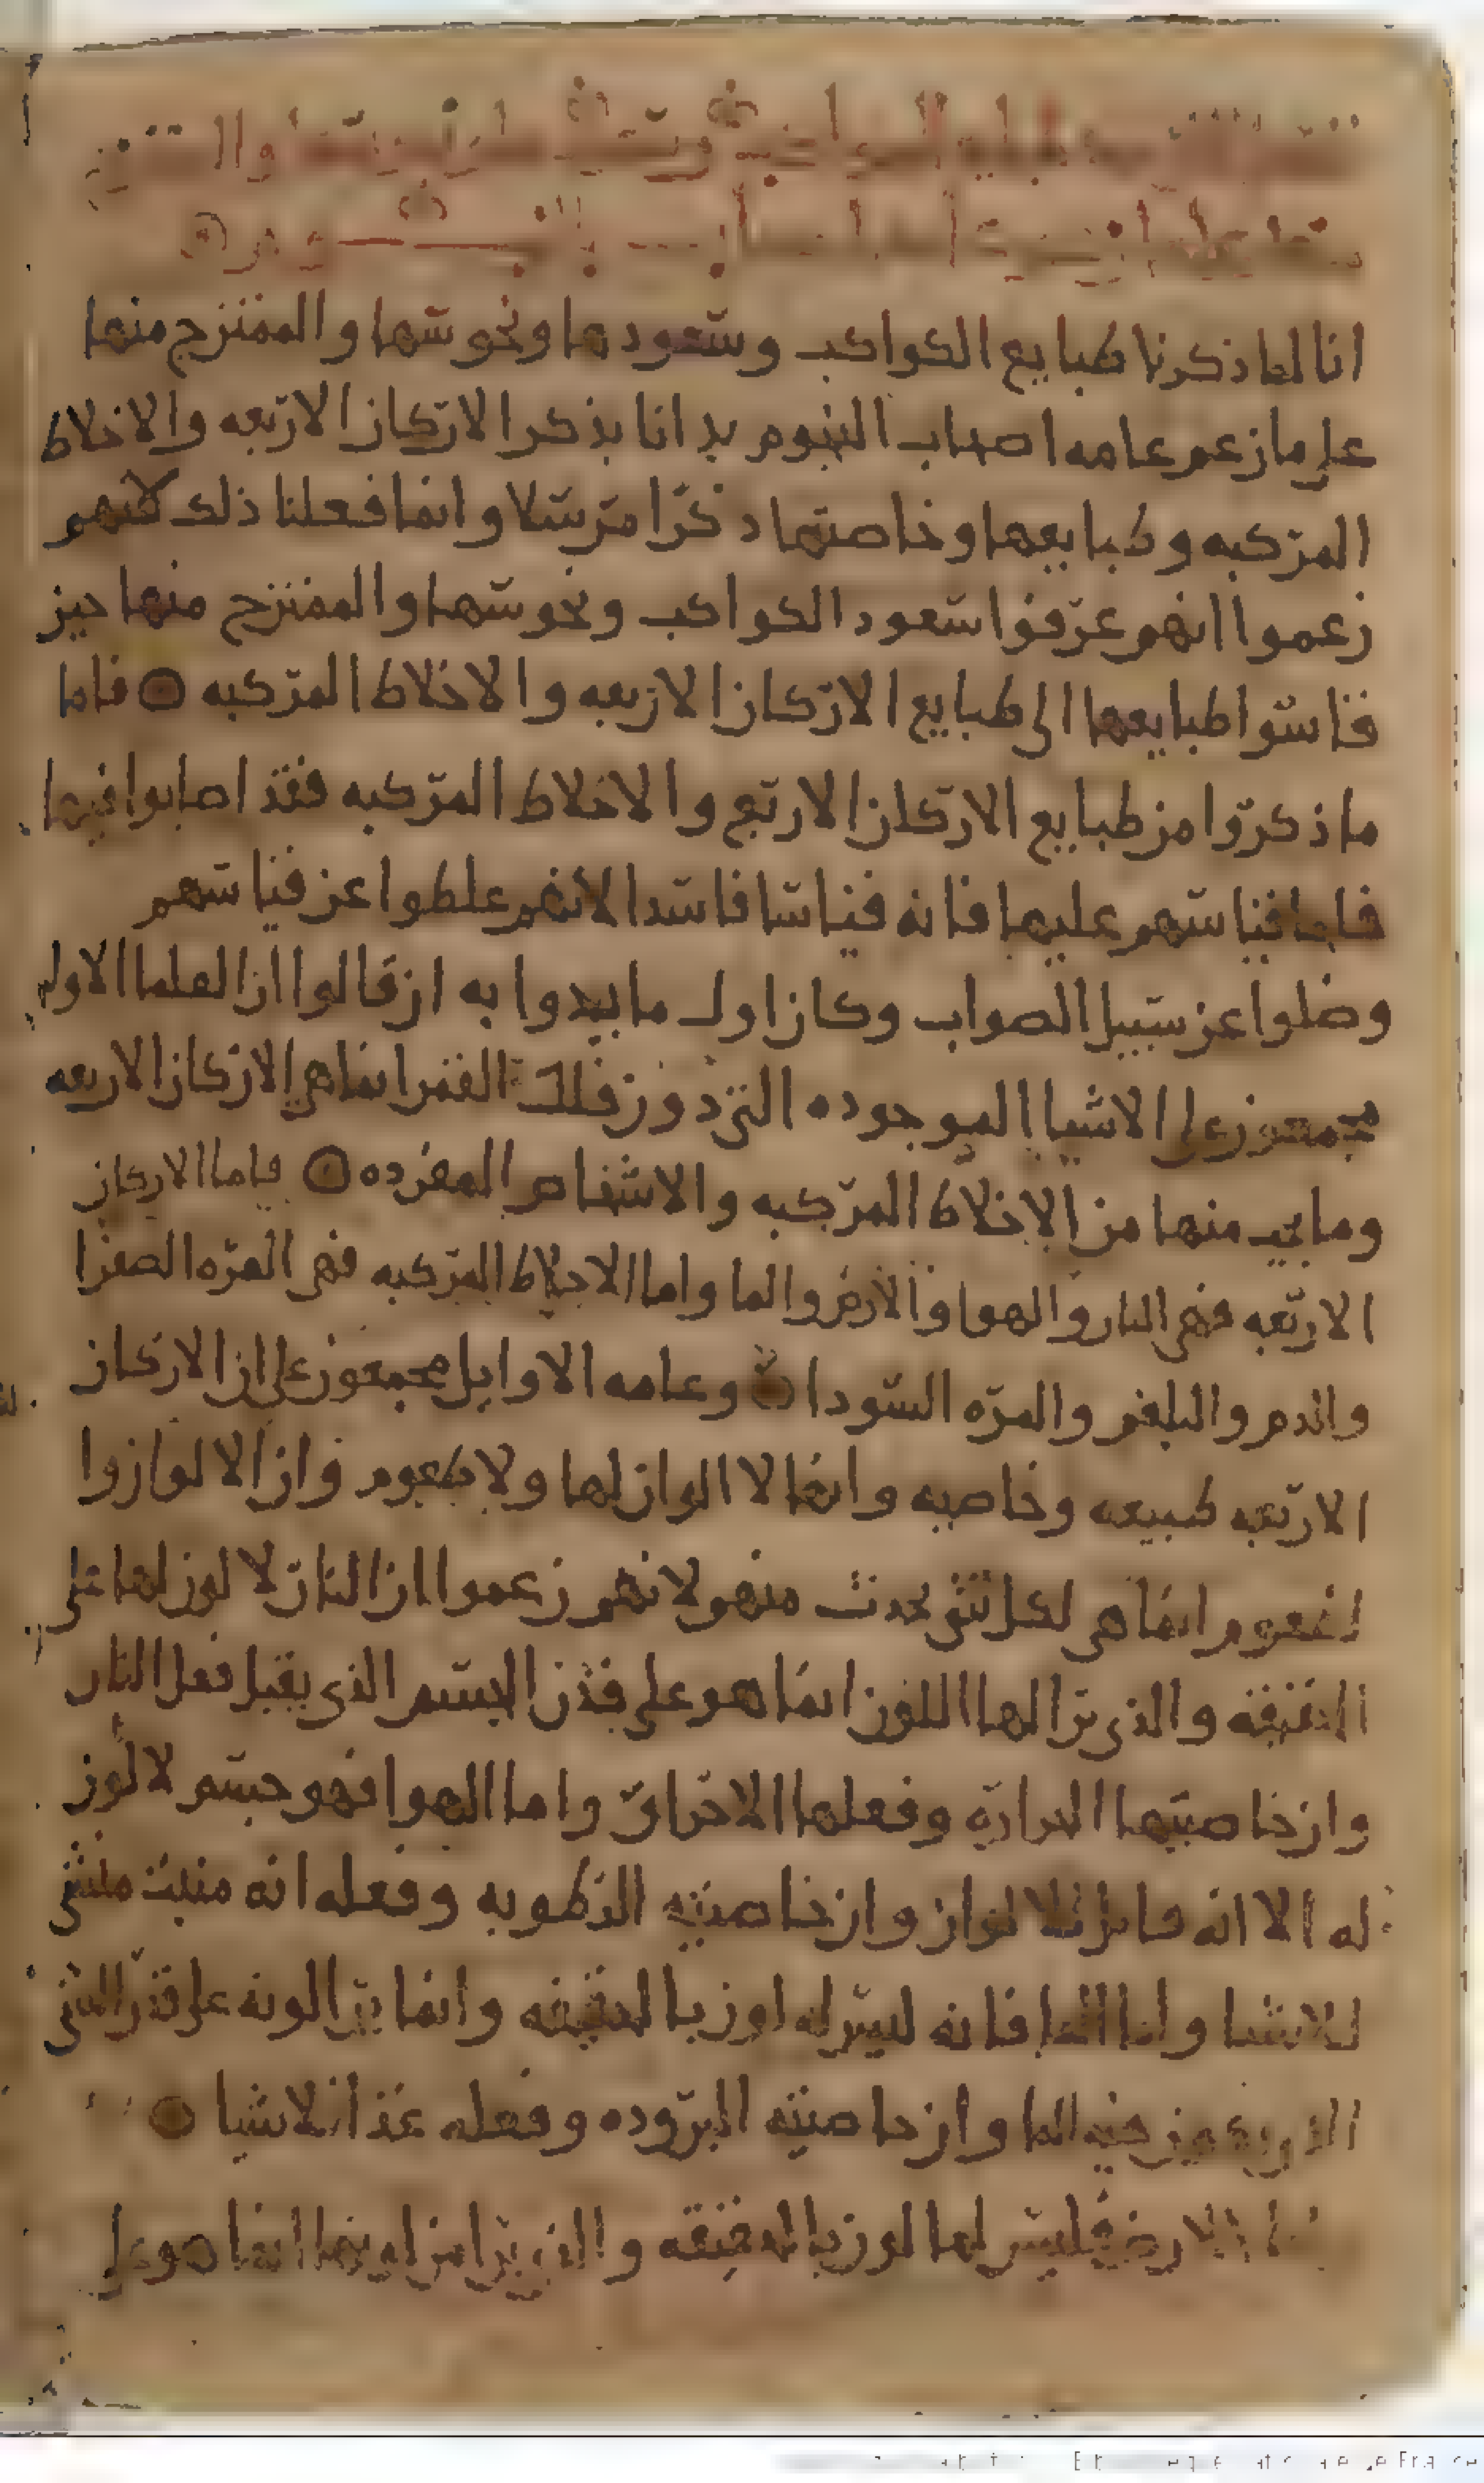 طبايع الكواكب وسعودها ونحوسها والممتزج
منها على ما زعم اصحاب النجوم
انا لما ذكرنا طبايع الكواكب وسعودها ونحوسها والممتزج منها
على ما زعم عامه اصحاب النجوم بدانا بذكر الاركان الاربعه والاخلاط
المركبه وطبايعها وخاصتها ذكرا مرسلا وانما فعلنا ذلك لانهم
زعموا انهم عرفوا سعود الكواكب ونحوسها والممتزج منها حين
قاسوا طبايعها الى طبايع الاركان الاربعه والاخلاط المركبه ۝ فاما
ما ذكروا من طبايع الاركان الاربع والاخلاط المركبه فقد اصابوا فيها
فاما قياسهم عليها فانه قياسا فاسدا لانهم غلطوا عن قياسهم
وضلوا عن سبيل الصواب وكان اول ما بدوا به ان قالوا ان العلما الاول
مجمعون على الاشيا الموجوده التي دون فلك القمر انما هي الاركان الاربعه
وما يجي منها من الاخلاط المركبه والاشخاص المفرده ۝ فاما الاركان
الاربعه فهي النار والهوا والارض والما واما الاخلاط المركبه فهي المره الصفرا
والدم والبلغم والمره السودا ۝ وعامه الاوايل مجمعون على ان الاركان
الاربعه طبيعه وخاصيه وانها لا الوان لها ولا طعوم وان الالوان وا
لطعوم انما هي لكل شي يحدث منهم لانهم زعموا ان النار لا لون لها على
الحقيقه والذي ترا لها اللون انما هو على قدر الجسم الذي يقبل فعل النار
وان خاصيتها الحراره وفعلها الاحراق واما الهوا فهو جسم لا لون
له الا انه قابل للالوان وان خاصيته الرطوبه وفعله انه منبت منشي
للاشيا واما الما فانه ليس له لون بالحقيقه وانما يرا لونه على قدر الشي
الذي يكون فيه الما وان خاصيته البروده وفعله غذا للاشيا ۝
واما الارض فليس لها لون بالحقيقه والذي يرا من لونها انما هو على